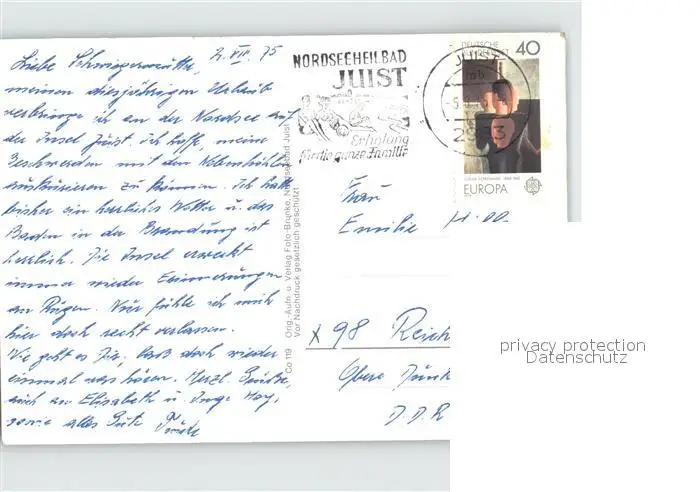 2. VIII. 75
Liebe Schwiegermutter,
meinen diesjährigen Urlaub
verbringe ich an der Nordsee auf
der Insel Juist. Ich hoffe, meine
Beschwerden mit den Nebenhöhlen
auskurieren zu können. Ich hatte
bisher ein herrliches Wetter u. das
Baden in der Brandung ist
herrlich. Die Insel erweckt
immer wieder Erinnerungen
an Rügen. Nur fühle ich mich
hier doch recht verlassen.
Wie geht es Dir, laß doch wieder
einmal was hören. Herzl. Grüße,
auch an Elisabeth u. Inge
sowie alles Gute
Co 119 Orig.-Aufn. u. Verlag Foto-Brunke, Nordseebad Juist
Vor Nachdruck gesetzlich geschützt
NORDSEEHEILBAD
JUIST
Erholung
für die ganze Familie
DEUTSCHE
BUNDESPOST 40
JUIST
mb
2983
EUROPA
Frau
Emilie
x 98 Reich
Obere Dunk
D.D.R
privacy protection
Datenschutz